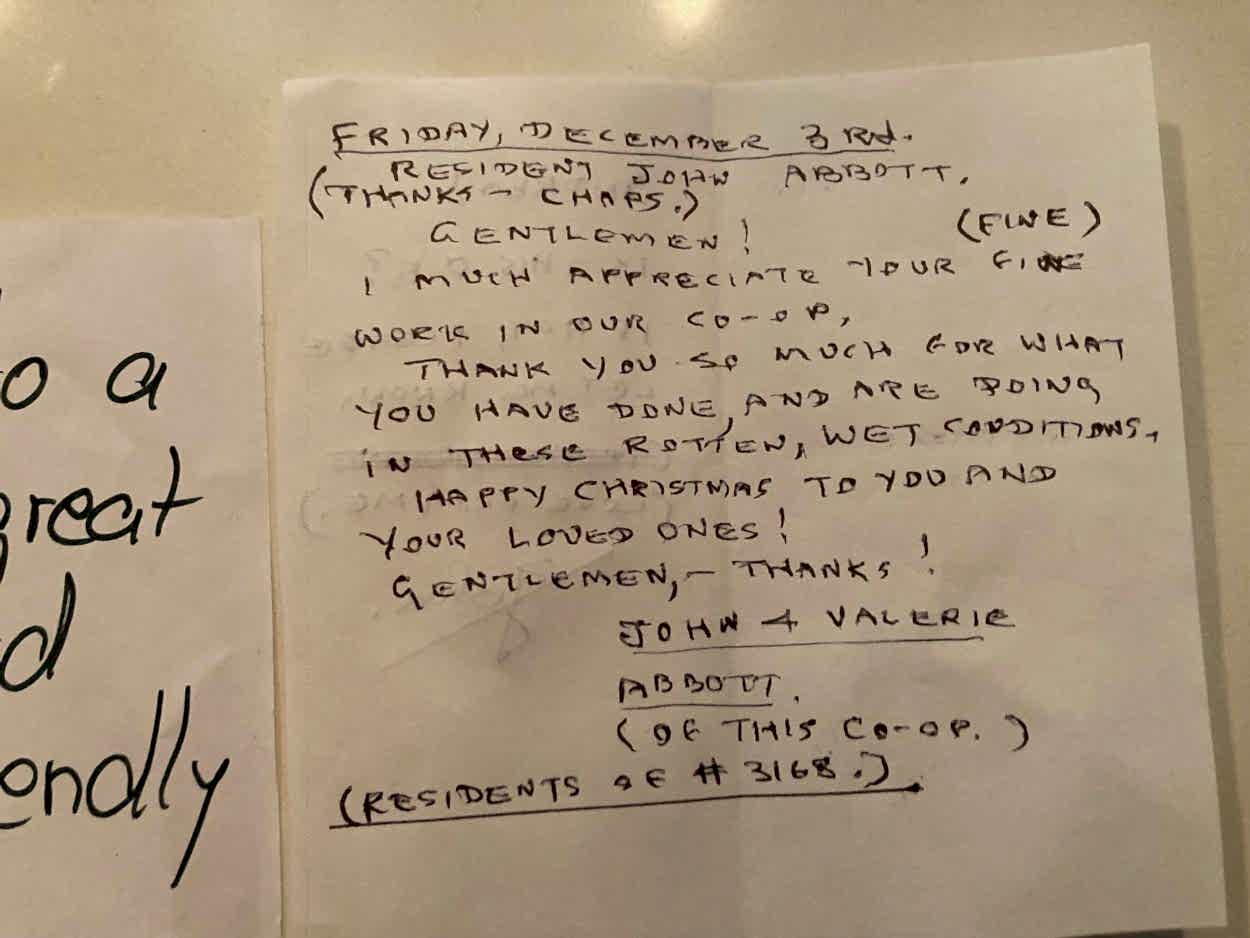 o a
great
d
endly
FRIDAY, DECEMBER 3 Rd.
RESIDENT JOHN ABBOTT.
(THANKS - CHAPS.)
GENTLEMEN!
(FINE)
I MUCH APPRECIATE YOUR FINE
WORK IN OUR CO-OP,
THANK YOU SO MUCH FOR WHAT
YOU HAVE DONE, AND ARE DOING
IN THESE ROTTEN, WET CONDITIONS.
HAPPY CHRISTMAS TO YOU AND
YOUR LOVED ONES!
GENTLEMEN, - THANKS!
JOHN + VALERIE
ABBOTT.
(OF THIS CO-OP.)
(RESIDENTS OF # 3168.)